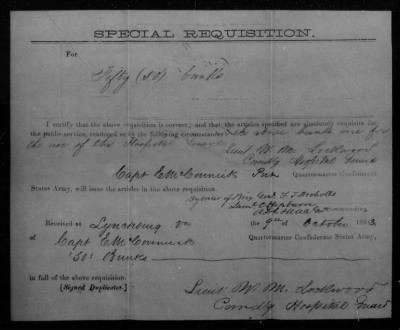 SPECIAL REQUISITION.
For
Fifty (50) bunks
I certify that the above requisition is correct; and that the articles specified are absolutely requisite for
the public service, rendered so by the following circumstances: the above bunks are for
the use of the Hospital Guard
Lieut W. M. Lockwood
Comdg Hospital Guard
Capt E McCormick Quartermaster Confederate
States Army, will issue the articles in the above requisition.
By order of Brig Genl F. T. Nicholls
Commanding
Received at Lynchburg Va the 9th of October 1863
of Capt E McCormick Quartermaster Confederate States Army,
"50" Bunks
in full of the above requisition.
[Signed Duplicates.]
Lieut W. M. Lockwood
Comdg Hospital Guard